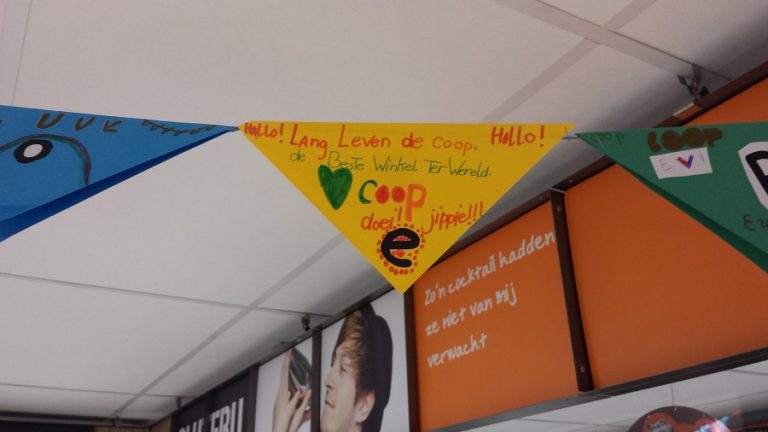 UUR
Hallo! Lang Leven de coop. Hallo!
de Beste Winkel Ter Wereld.
coop
doei! jippie!!!
e
COOP
EVI
Zo'n cocktail hadden
ze niet van mij
verwacht